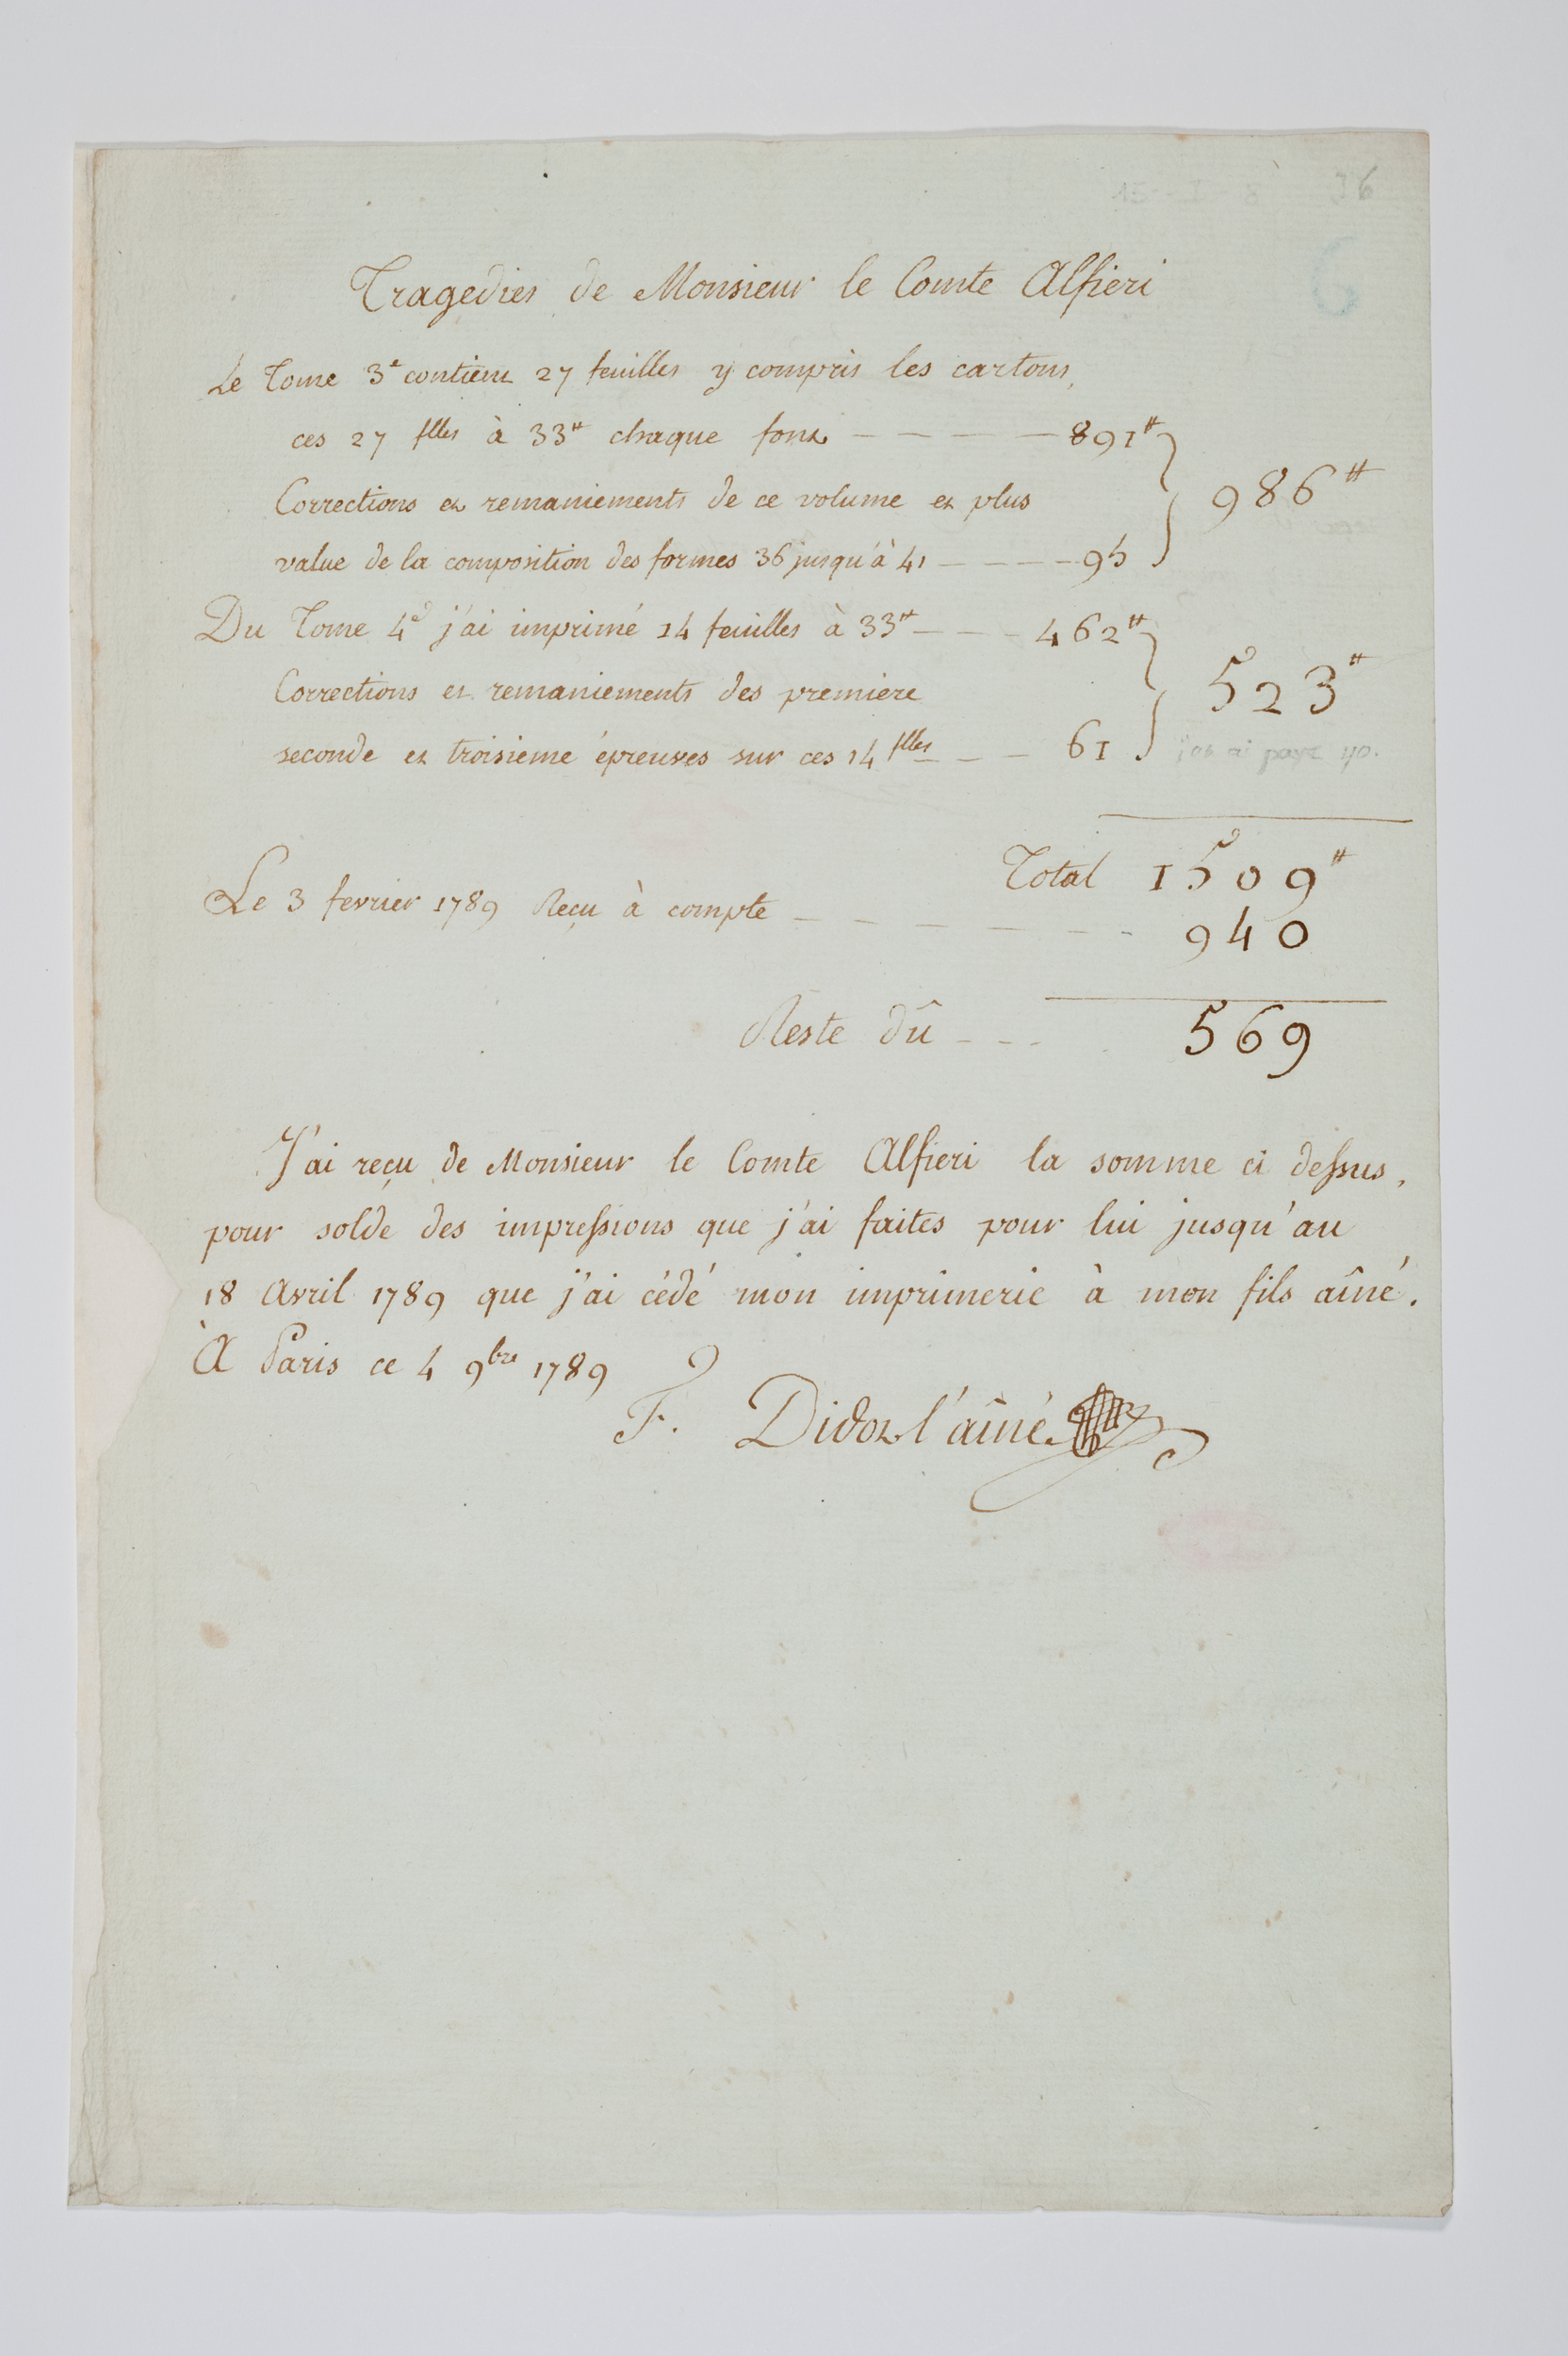 Tragedies de Monsieur le Comte Alfieri
Le Tome 3e contient 27 feuilles y compris les cartons,
ces 27 flles à 33# chaque font — — — — — 891#
Corrections et remaniements de ce volume et plus
986#
value de la composition des formes 36 jusqu'à 41 — — — — 95
Du Tome 4e j'ai imprimé 14 feuilles à 33# — — — 462#
Corrections et remaniements des premiere
523#
seconde et troisieme épreuves sur ces 14 flles — — — 61
Total 1509#
Le 3 fevrier 1789 Reçu à compte — — — — — — - 940
Reste dû - - - 569
J'ai reçu de Monsieur le Comte Alfieri la somme ci dessus,
pour solde des impressions que j'ai faites pour lui jusqu'au
18 Avril 1789 que j'ai cédé mon imprimerie à mon fils aîné.
À Paris ce 4 9bre 1789
F. Didot l'aîné.